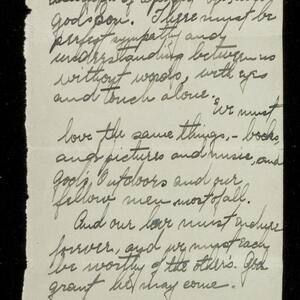 godspoon. There must be
perfect sympathy and
understanding between us
without words, with eyes
and touch alone.
We must
love the same things, - books
and pictures and music, and
God's Outdoors and our
fellow men most of all.
And our love must endure
forever, and we must each
be worthy of the other's. God
grant he may come.